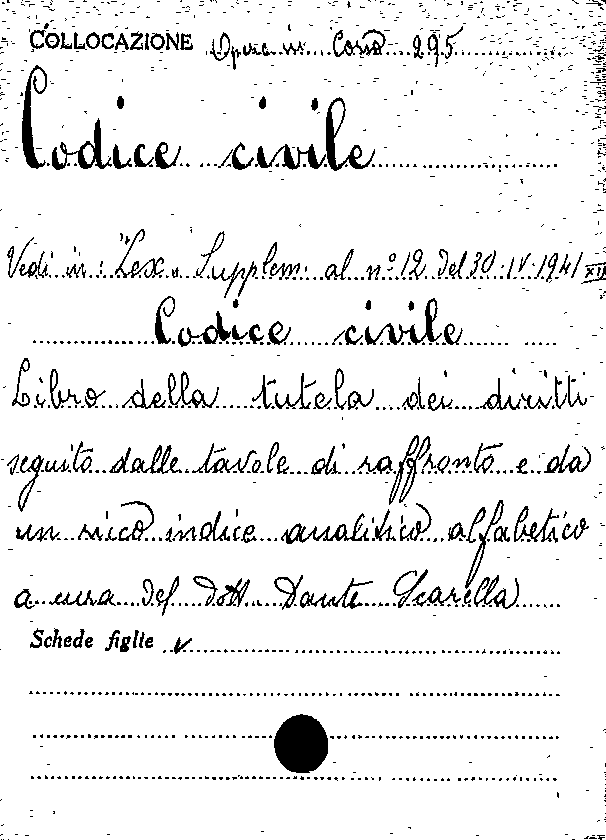 COLLOCAZIONE Opere in Corso 295
Codice civile
Vedi in: "Lex" Supplem. al nº 12 del 30.IV.1941 XIX
Codice civile
Libro della tutela dei diritti
seguito dalle tavole di raffronto e da
un ricco indice analitico alfabetico
a cura del dott. Dante Scarella
Schede figlie v